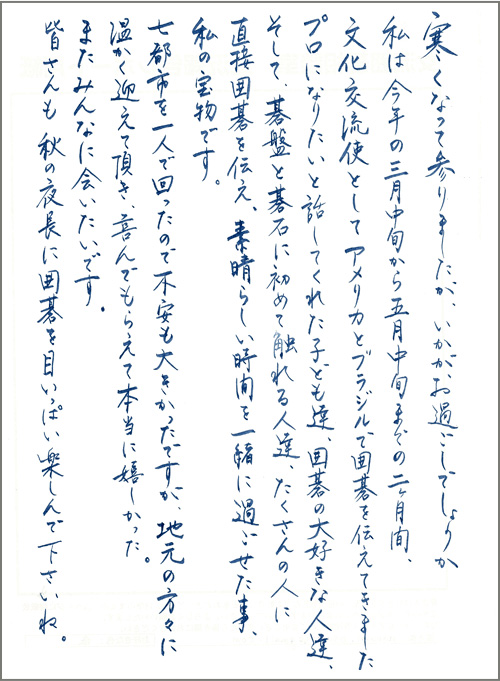 寒くなって参りましたが、いかがお過ごしでしょうか
私は今年の三月中旬から五月中旬までの二ヶ月間、
文化交流使としてアメリカとブラジルで囲碁を伝えてきました
プロになりたいと話してくれた子ども達、囲碁の大好きな人達、
そして、碁盤と碁石に初めて触れる人達、たくさんの人に
直接囲碁を伝え、素晴らしい時間を一緒に過ごせた事、
私の宝物です。
七都市を一人で回ったので不安も大きかったですが、地元の方々に
温かく迎えて頂き、喜んでもらえて本当に嬉しかった。
またみんなに会いたいです。
皆さんも秋の夜長に囲碁を目いっぱい楽しんで下さいね。